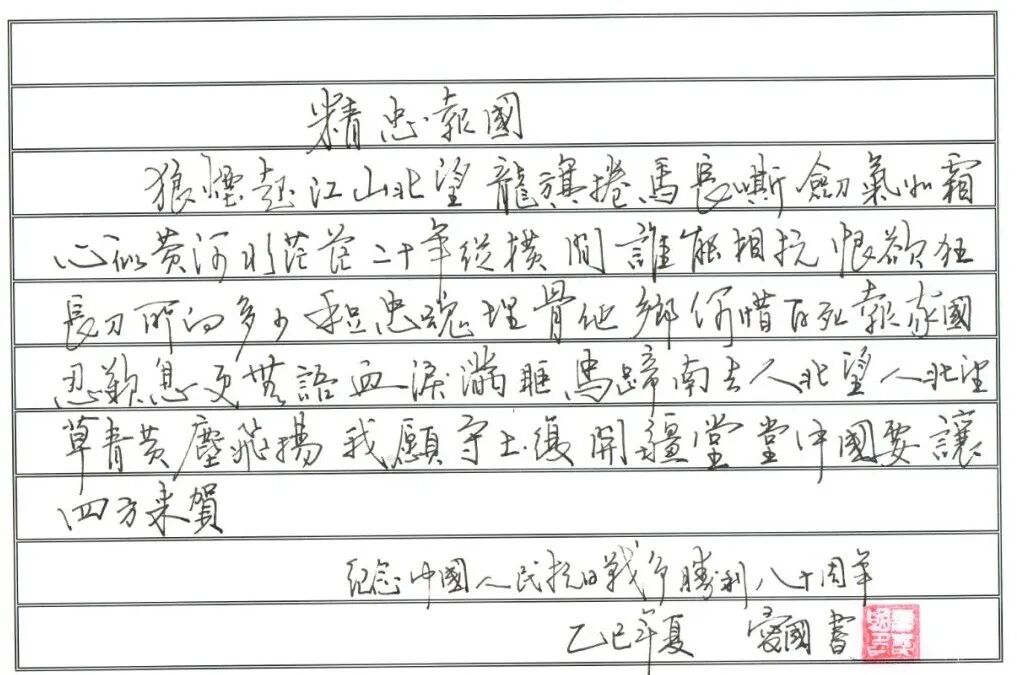 精忠報國
狼煙起江山北望龍旗捲馬長嘶劍氣如霜
心似黄河水茫茫二十年縱橫間誰能相抗恨欲狂
長刀所向多少手足忠魂埋骨他鄉何惜百死報家國
忍歎息更無語血淚滿眶馬蹄南去人北望人北望
草青黄塵飛揚我願守土復開疆堂堂中國要讓
四方来賀
紀念中國人民抗日戰爭勝利八十周年
乙巳年夏 愛國書